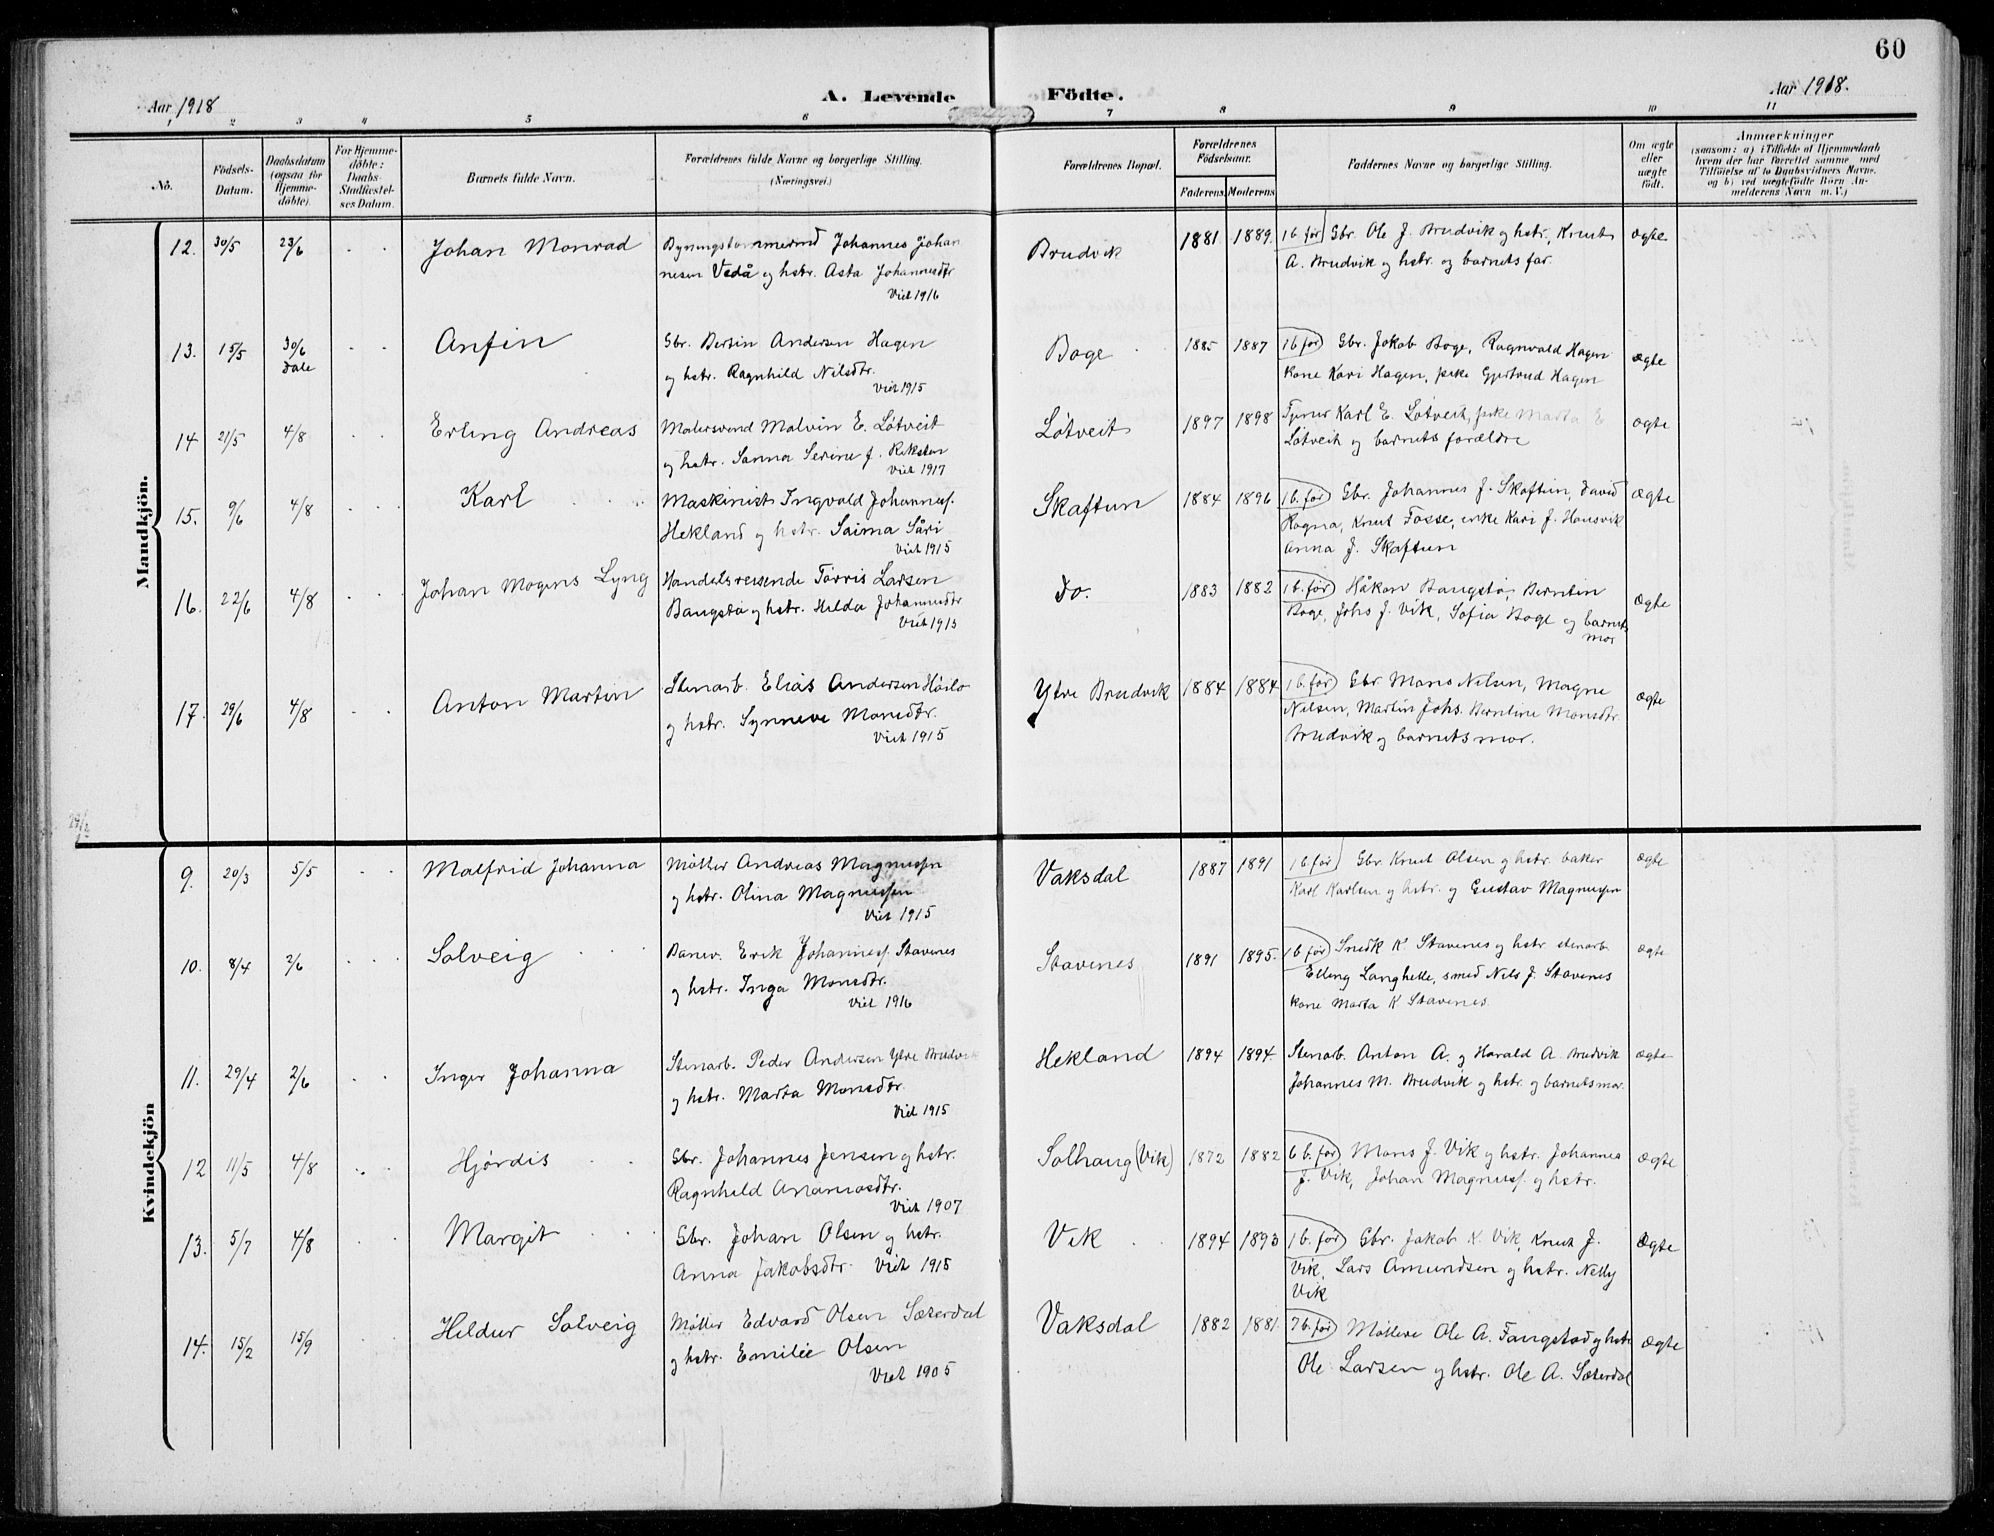 60
Aar 1918
A. Levende Födte.
Aar 1918.
1 2 3 4 5 6 7 8 9 10 11
No.
Födsels-Datum.
Daabsdatum (ogsaa for Hjemme-döbte).
For Hjemme-döbte: Daabs-Stadfæstel-ses Datum.
Barnets fulde Navn.
Forældrenes fulde Navne og borgerlige Stilling. (Næringsvei.)
Forældrenes Bopæl.
Forældrenes Födselsaar.
Faderens. Moderens.
Faddernes Navne og borgerlige Stilling.
Om ægte eller uægte födt.
Anmærkninger
(saasom: a) i Tilfælde af Hjemmedaab
hvem der har forrettet samme med
Tilföielse af to Daabsvidners Navne.
og b) ved uægtefödte Börn An-
melderens Navn m. V.)
Mandkjön.
12. 30/5 23/6 Johan Monrad
Johannes Johan
nesen Vedå og hstr. Asta Johannesdtr
Viet 1916
Brudvik 1881 1889. 1 b. før Gbr. Ole J. Brudvik og hstr., Knut
A. Brudvik og hstr. og barnets far.
ægte
13. 15/5 30/6 Dale Anfin
Gbr. Bertin Andersen Hagen
og hstr. Ragnhild Nilsdtr.
Viet 1915
Boge 1885 1887 1 b før Gbr. Jakob Boge, Ragnvald Hagen
kone Kari Hagen, pike Gjertrud Hagen
ægte
14 21/5 4/8 Erling Andreas
Malersvend Malvin E. Løtveit
og hstr. Sanna Serine J. Reksten
Viet 1917
Løtveit 1897 1898 Tjener Karl E. Løtveit, pike Marta E
Løtveit og barnets forældre
ægte
15. 9/6 4/8 Karl
Maskinist Ingvald Johanness.
Hekland og hstr. Saima Såri
Viet 1915
Skaftun 1884 1896 1 b. før Gbr. Johannes J. Skaftun, David
Ragna, Knut Fosse, enke Kari J. Hausvik
Anna J. Skaftun
ægte
16. 22/6 4/8 Johan Mogens Lyng
Handelsreisende Tørris Larsen
Bangstø og hstr. Hilda Johannesdtr
Viet 1913
Do. 1883 1882 1 b. før Håkon Bangstø, Berntin
Boge, Johs J. Vik, Sofia Boge og barnets
mor
ægte
17. 29/6 4/8 Anton Martin
Stenarb. Elias Andersen
og hstr. Synneve Monsdtr.
Viet 1915
Ytre Brudvik 1884 1884 1 b. før Gbr Mons Nilsen, Magne
Nilsen, Martin Johs. Berntine Monsdtr.
Brudvik og barnets mor.
ægte
Kvindekjön
9. 20/3 5/5 Malfrid Johanna
Møller Andreas Magnussen
og hstr. Olina Magnussen
Viet 1915
Vaksdal 1887 1891 1 b før Gbr. Knut Olsen og hstr. baker
Karl Karlsen og hstr. og Gustav Magnussen
ægte
10. 8/4 2/6 Solveig
Banev. Erik Johanness. Stavenes
og hstr. Inga Monsdtr.
Viet 1916
Stavenes 1891 1895. 1 b før Snedk K Stavenes og hstr stenarb.
Elling Langhelle, smed Nils J. Stavenes
kone Marta K Stavenes.
ægte
11. 29/4 2/6 Inger Johanna
Stenarb. Peder Andersen Ytre Brudvik
og hstr. Marta Monsdtr.
Viet 1915
Hekland 1894 1894. Stenarb. Anton A. og Harald A. Brudvik
Johannes M. Brudvik og hstr. og barnets mor.
ægte
12 11/5 4/8 Hjørdis
Gbr. Johannes Jensen og hstr.
Ragnhild
Viet 1907
Solhaug (Vik) 1872 1882 6 b. før Mons J. Vik og hstr. Johannes
J. Vik, Johan Magnuss. og hstr.
ægte
13. 5/7 4/8 Margit
Gbr. Johan Olsen og hstr.
Anna Jakobsdtr. Viet 1915
Vik 1894 1893 1 b. før Gbr. Jakob K. Vik, Knut J.
Vik, Lars Amundsen og hstr. Nelly
Vik
Ægte
14. 15/2 15/9 Hildur Solveig
Møller Edvard Olsen Sæterdal
og hstr. Emilie Olsen
Viet 1905
Vaksdal 1882 1881. 7 b. før Møllere Ole A. Fangstad og hstr
Ole Larsen og hstr. Ole A. Sæterdal
Ægte